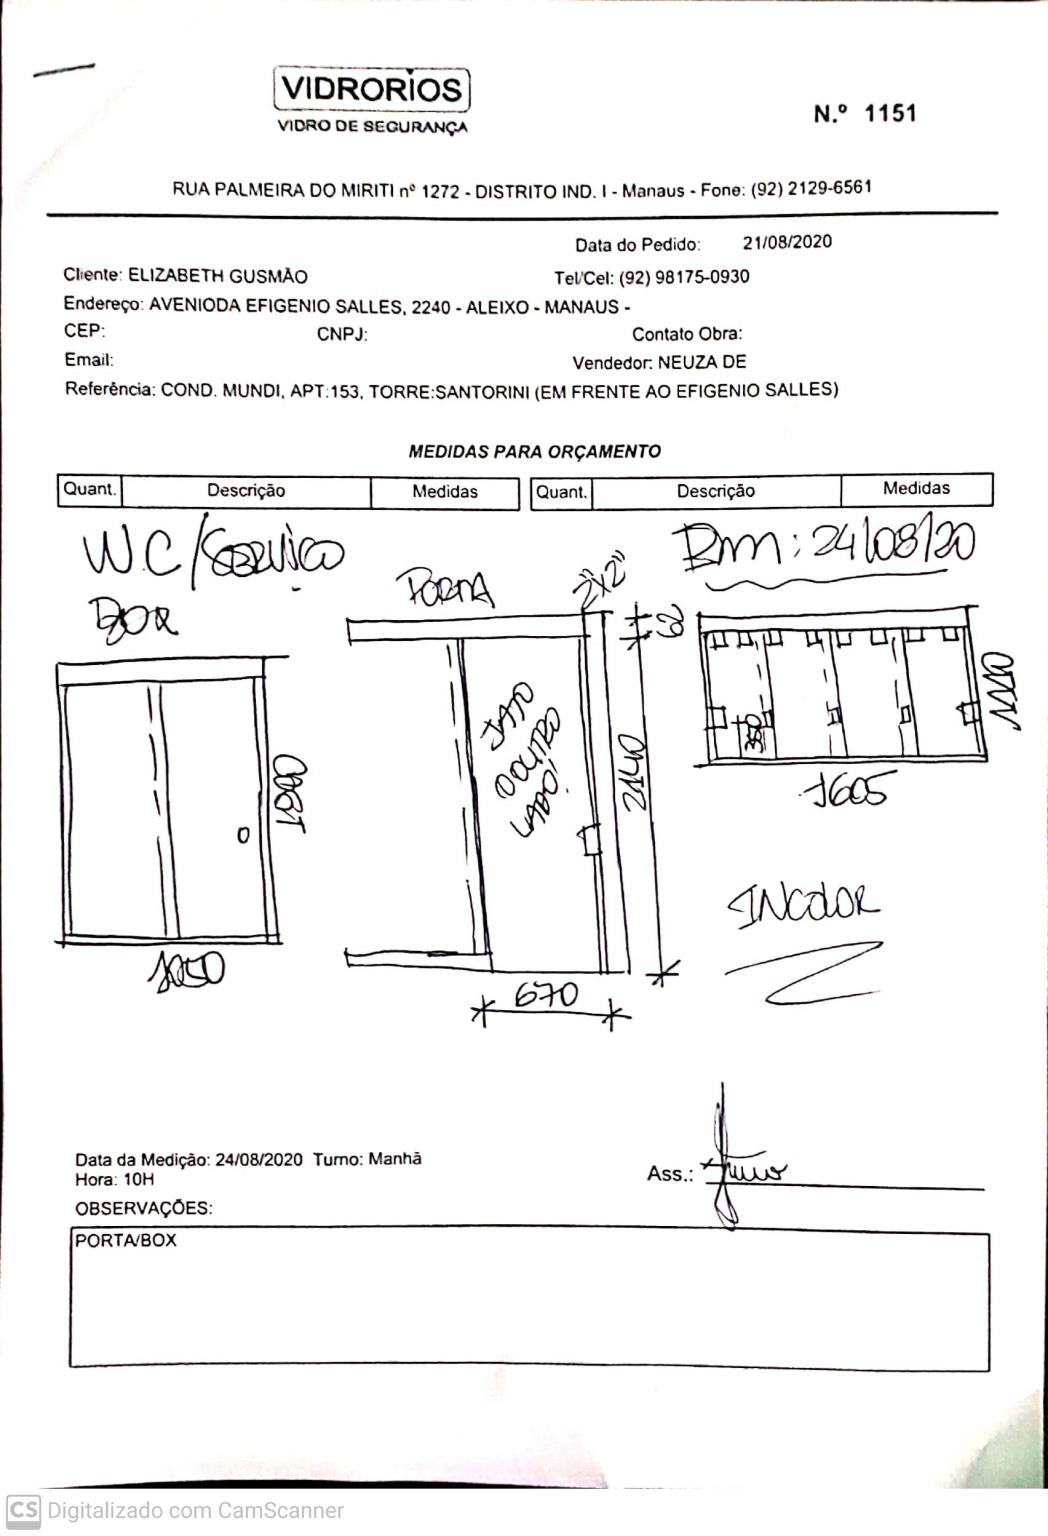 VIDRORIOS
VIDRO DE SEGURANÇA
N.º 1151
RUA PALMEIRA DO MIRITI nº 1272 - DISTRITO IND. I - Manaus - Fone: (92) 2129-6561
Data do Pedido: 21/08/2020
Cliente: ELIZABETH GUSMÃO Tel/Cel: (92) 98175-0930
Endereço: AVENIODA EFIGENIO SALLES, 2240 - ALEIXO - MANAUS -
CEP: CNPJ: Contato Obra:
Email: Vendedor: NEUZA DE
Referência: COND. MUNDI, APT:153, TORRE:SANTORINI (EM FRENTE AO EFIGENIO SALLES)
MEDIDAS PARA ORÇAMENTO
Quant. Descrição Medidas Quant. Descrição Medidas
W.C/SERVIÇO
BOX
1900
1050
PORTA
2"X2"
62
JATO
O OUTRO
LADO!
2140
670
: 24/08/20
350
1605
INCOLOR
Data da Medição: 24/08/2020 Turno: Manhã
Hora: 10H
Ass.:
OBSERVAÇÕES:
PORTA/BOX
CS Digitalizado com CamScanner